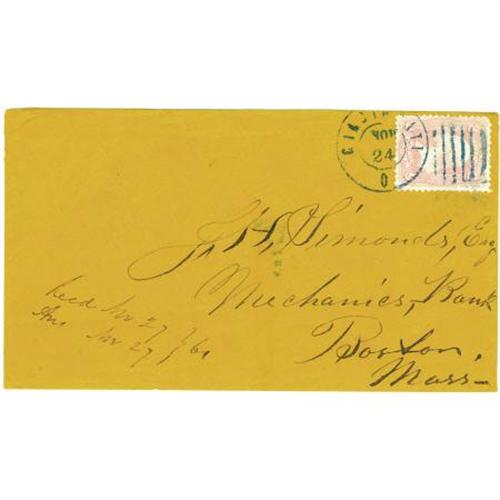 CINCINNATI
NOV
24
O
J. H. Simonds, Esq
Mechanics, Bank
Boston,
Mass—
Recd Nov 27 } 61
Ans Nov 27 }